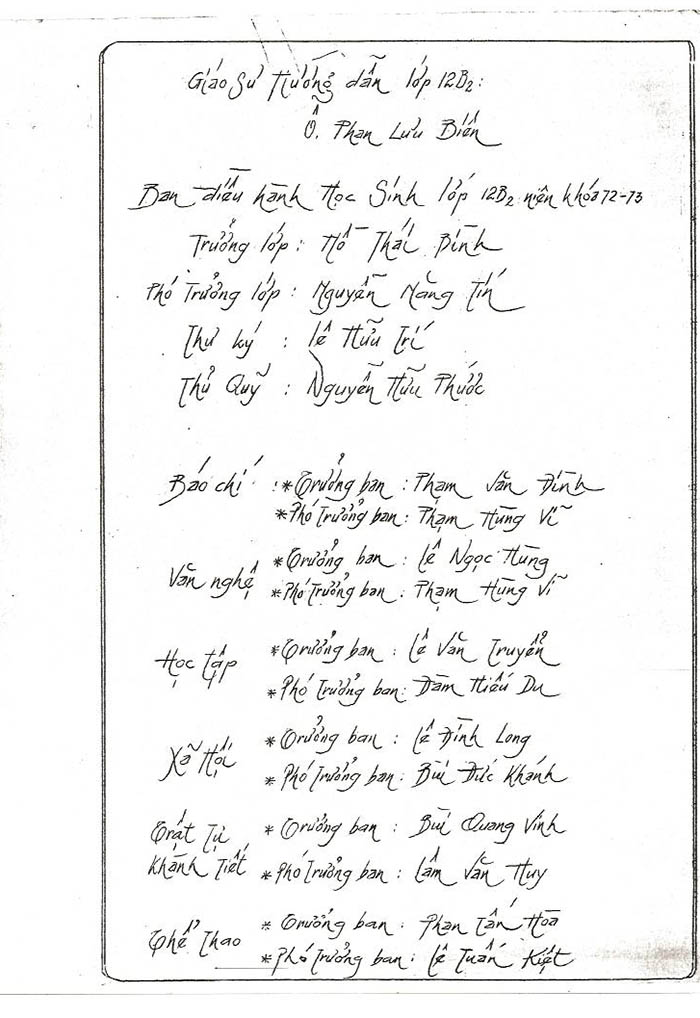 Giáo Sư Hướng dẫn lớp 12B2:
Ô. Phan Lưu Biên
Ban điều hành Học Sinh lớp 12B2 niên khóa 72-73
Trưởng lớp : Hồ Thái Bình
Phó Trưởng lớp : Nguyễn Năng Tín
Thư ký : Lê Hữu Trí
Thủ Quỹ : Nguyễn Hữu Phước
Báo chí : * Trưởng ban : Phạm Văn Đình
* Phó Trưởng ban : Phạm Hùng Vĩ
Văn nghệ * Trưởng ban : Lê Ngọc Hùng
* Phó Trưởng ban : Phạm Hùng Vĩ
Học Tập * Trưởng ban : Lê Văn Truyền
* Phó Trưởng ban : Đàm Hiếu Du
Xã Hội * Trưởng ban : Lê Đình Long
* Phó Trưởng ban : Bùi Đức Khánh
Trật Tự * Trưởng ban : Bùi Quang Vinh
Khánh Tiết * Phó Trưởng ban : Lâm Văn Huy
Thể Thao * Trưởng ban : Phan Tấn Hòa
* Phó Trưởng ban : Lê Tuấn Kiệt